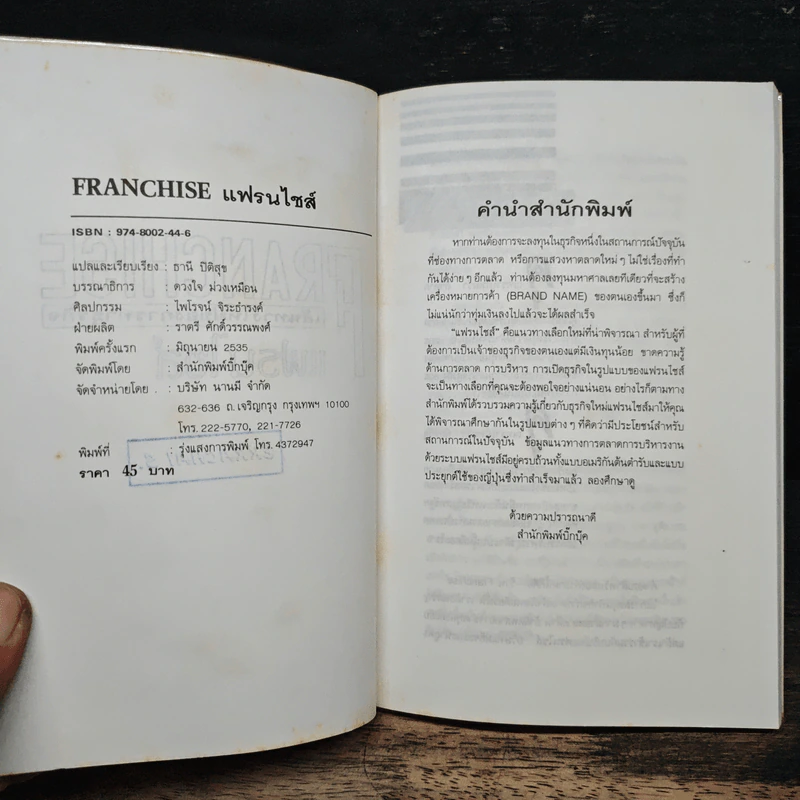 FRANCHISE แฟรนไชส์
ISBN : 974-8002-44-6
แปลและเรียบเรียง : ธานี ปิติสุข
บรรณาธิการ : ดวงใจ ม่วงเหมือน
ศิลปกรรม : ไพโรจน์ จิระธำรงค์
ฝ่ายผลิต : ราตรี ศักดิ์วรรณพงศ์
พิมพ์ครั้งแรก : มิถุนายน 2535
จัดพิมพ์โดย : สำนักพิมพ์บิ๊กบุ๊ค
จัดจำหน่ายโดย . : บริษัท นานมี จำกัด
632-636 ถ.เจริญกรุง กรุงเทพฯ 10100
โทร. 222-5770, 221-7726
พิมพ์ที่ : รุ่งแสงการพิมพ์ โทร. 4372947
ราคา 45 บาท
คำนำสำนักพิมพ์
หากท่านต้องการจะลงทุนในธุรกิจหนึ่งในสถานการณ์ปัจจุบัน
ที่ช่องทางการตลาด หรือการแสวงหาตลาดใหม่ ๆ ไม่ใช่เรื่องที่ทำ
กันได้ง่าย ๆ อีกแล้ว ท่านต้องลงทุนมหาศาลเลยทีเดียวที่จะสร้าง
เครื่องหมายการค้า (BRAND NAME) ของตนเองขึ้นมา ซึ่งก็
ไม่แน่นักว่าทุ่มเงินลงไปแล้วจะได้ผลสำเร็จ
"แฟรนไชส์" คือแนวทางเลือกใหม่ที่น่าพิจารณา สำหรับผู้ที่
ต้องการเป็นเจ้าของธุรกิจของตนเองแต่มีเงินทุนน้อย ขาดความรู้
ด้านการตลาด การบริหาร การเปิดธุรกิจในรูปแบบของแฟรนไชส์
จะเป็นทางเลือกที่คุณจะต้องพอใจอย่างแน่นอน อย่างไรก็ตามทาง
สำนักพิมพ์ได้รวบรวมความรู้เกี่ยวกับธุรกิจใหม่แฟรนไชส์มาให้คุณ
ได้พิจารณาศึกษากันในรูปแบบต่าง ๆ ที่คิดว่ามีประโยชน์สำหรับ
สถานการณ์ในปัจจุบัน ข้อมูลแนวทางการตลาดการบริหารงาน
ด้วยระบบแฟรนไชส์มีอยู่ครบถ้วนทั้งแบบอเมริกันต้นตำรับและแบบ
ประยุกต์ใช้ของญี่ปุ่นซึ่งทำสำเร็จมาแล้ว ลองศึกษาดู
ด้วยความปรารถนาดี
สำนักพิมพ์บิ๊กบุ๊ค